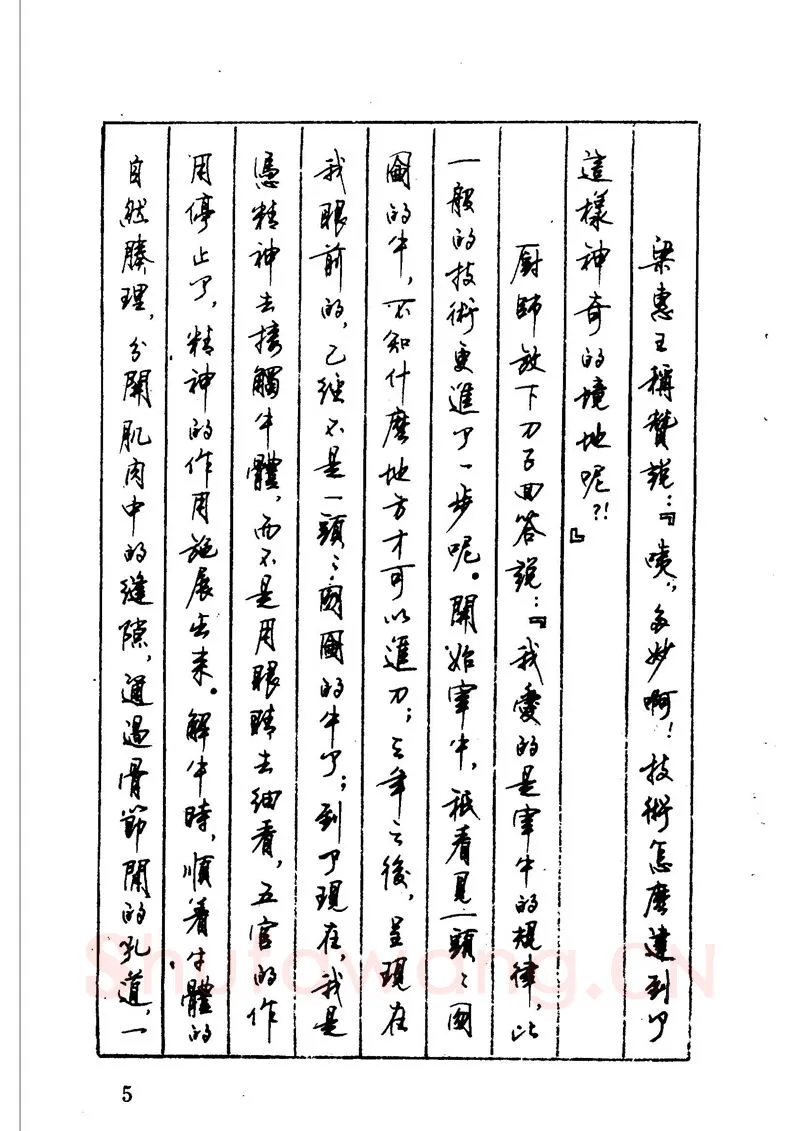 梁惠王稱贊說：『噢，多妙啊！技術怎麽達到了
這樣神奇的境地呢？！』
廚師放下刀子回答說：『我愛的是宰牛的規律，比
一般的技術更進了一步呢。開始宰牛，衹看見一頭〻囫
圇的牛，不知什麽地方才可以進刀；三年之後，呈現在
我眼前的，已經不是一頭〻囫圇的牛了；到了現在，我是
憑精神去接觸牛體，而不是用眼睛去細看，五官的作
用停止了，精神的作用施展出来。解牛時，順着牛體的
自然腠理，分開肌肉中的縫隙，通過骨節間的孔道，一
5
Shufawang.CN